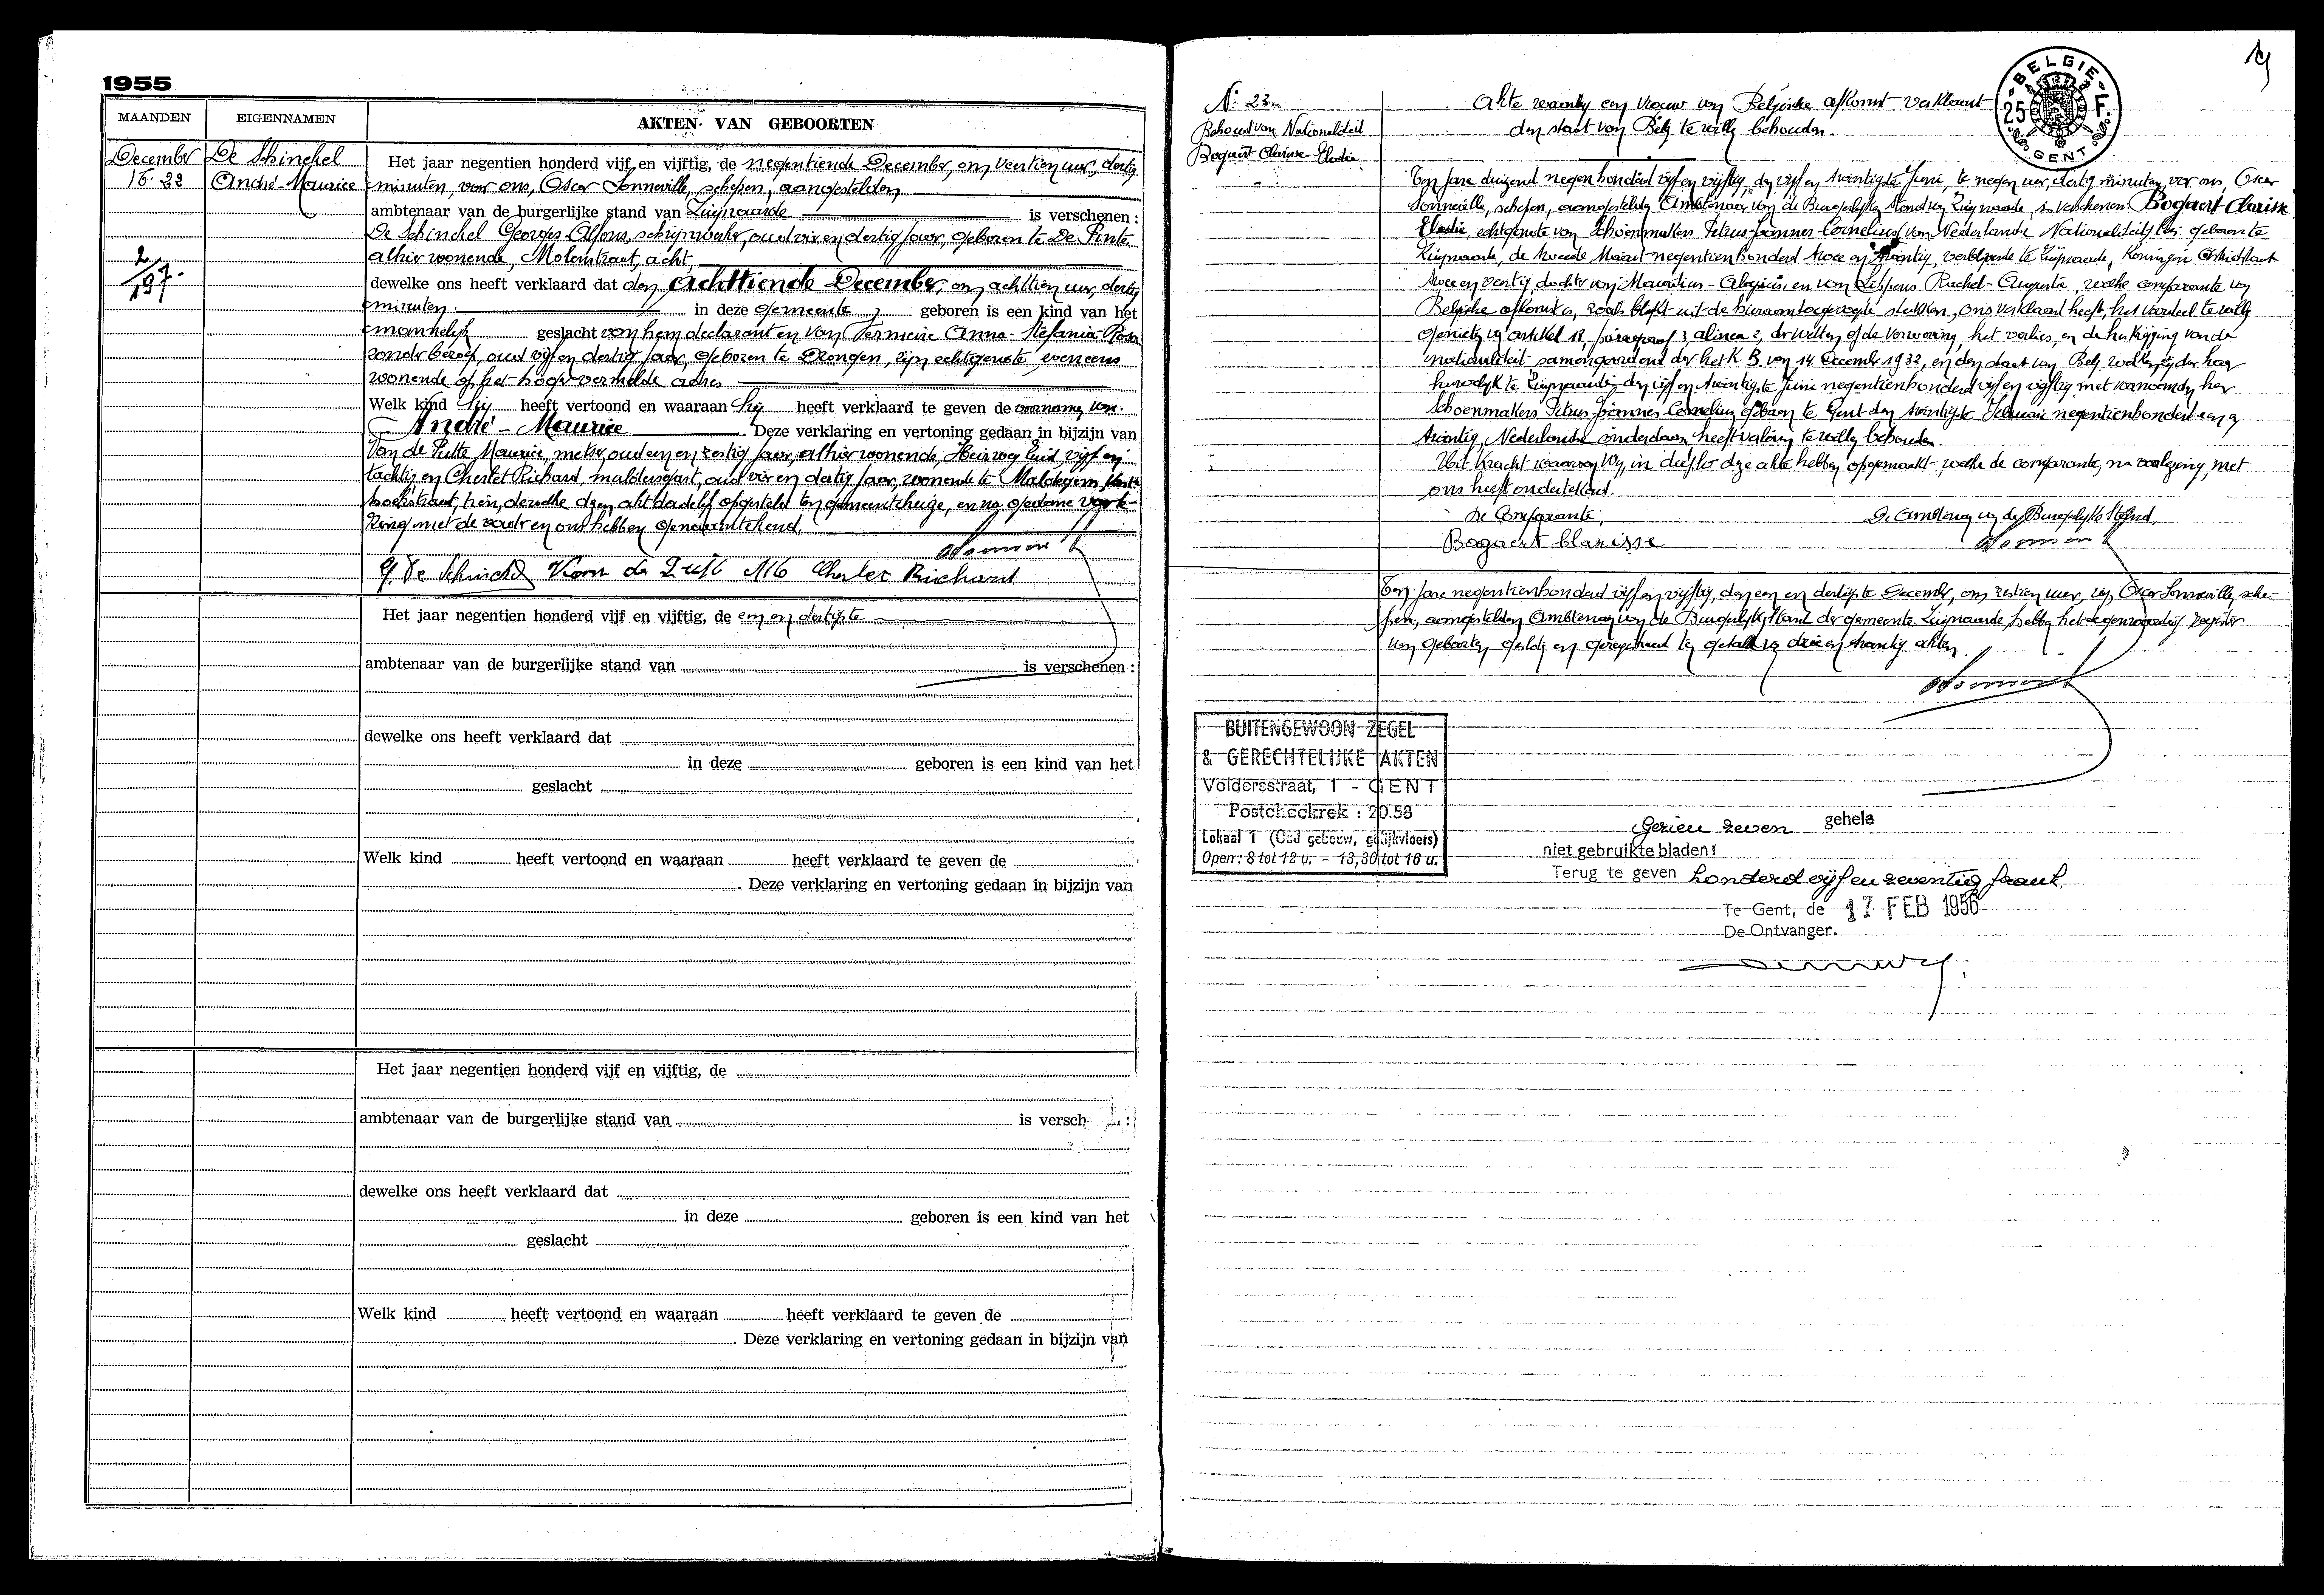 1955
MAANDEN EIGENNAMEN AKTEN VAN GEBOORTEN
December
18. 22
De Schinckel
André Maurice
2/197.
Het jaar negentien honderd vijf en vijftig, de negentiende December, om veertien uur, dertig
minuten, voor ons, Oscar Sonneville, schepen, aangestelden
ambtenaar van de burgerlijke stand van Zwijnaarde is verschenen :
De Schinckel Georges-Alfons, schrijnwerker, oud vier en dertig jaar, geboren te De Pinte
alhier wonende, Molenstraat, acht,
dewelke ons heeft verklaard dat den Achttiende December, om achttien uur, dertig
minuten in deze gemeente geboren is een kind van het
mannelijk geslacht van hem declarant en van Vermeire Anna-Stefania-Rosa
zonder beroep, oud vijf en dertig jaar, geboren te Drongen, zijn echtgenote, eveneens
wonende op het hoger vermelde adres
Welk kind hij heeft vertoond en waaraan hij heeft verklaard te geven de voornamen van:
André - Maurice Deze verklaring en vertoning gedaan in bijzijn van
Van de Putte Maurice, metser, oud een en zestig jaar, alhier wonende, Heirweg Zuid, vijf en
tachtig en Richard, oud vier en dertig jaar, wonende te
en na gedane voorle-
zing met de vader en ons hebben ondertekend.
G. De Schinckel Van de Putte M Richard
Het jaar negentien honderd vijf en vijftig, de een en dertigste
ambtenaar van de burgerlijke stand van is verschenen :
dewelke ons heeft verklaard dat
in deze geboren is een kind van het
geslacht
Welk kind heeft vertoond en waaraan heeft verklaard te geven de
. Deze verklaring en vertoning gedaan in bijzijn van
Het jaar negentien honderd vijf en vijftig, de
ambtenaar van de burgerlijke stand van is versch :
dewelke ons heeft verklaard dat
in deze geboren is een kind van het
geslacht
Welk kind heeft vertoond en waaraan heeft verklaard te geven de
. Deze verklaring en vertoning gedaan in bijzijn van
19
BELGIE
25 F.
GENT
N: 23
Behoud van Nationaliteit
Bogaert Clarisse-Elodie
Akte waarbij een vrouw van Belgische afkomst verklaart
den staat van Belg te willen behouden
Ten jare duizend negen honderd vijf en vijftig, den vijf en twintigste Juni, te negen uur, dertig minuten, voor ons, Oscar
Sonneville, schepen, aangestelden Ambtenaar van de Burgerlijken Stand van Zwijnaarde, is verschenen Bogaert Clarisse
Elodie, echtgenote van Schoenmakers Petrus-Joannes-Cornelius van Nederlandse Nationaliteit, geboren te
Zwijnaarde, de tweede Maart negentienhonderd twee en twintig, verblijvende te Zwijnaarde, Koningin Astridlaan
twee en veertig, dochter van Mauritius-Aloysius, en van Rachel-Augusta, welke comparante van
Belgische afkomst is, zoals blijkt uit de hieraan toegevoegde stukken, ons verklaard heeft, het voordeel te willen
genieten van artikel 18, paragraaf 3, alinea 2, der wetten op de verwerving, het verlies, en de herkrijging van de
nationaliteit samengeordend door het K. B. van 14 December 1932, en den staat van Belg welken zij door haar
huwelijk te Zwijnaarde den vijf en twintigste Juni negentienhonderd vijf en vijftig met voornoemden heer
Schoenmakers Petrus Joannes Cornelius geboren te Gent den twintigste Februari negentienhonderd een en
twintig, Nederlands onderdaan heeft verloren te willen behouden
Uit kracht waarvan Wij, in dubbel deze akte hebben opgemaakt welke de comparante, na voorlezing, met
ons heeft ondertekend.
De Comparante, De Ambtenaar van den Burgerlijke Stand,
Bogaert Clarisse
Ten jare negentienhonderd vijf en vijftig, den een en dertigste December, om zestien uur, wij, Oscar Sonneville, sche-
pen, aangestelden Ambtenaar van de Burgerlijken Stand der gemeente Zwijnaarde, hebben het tegenwoordig register
van geboorten gesloten en geregistreerd ten getalle van drie en twintig akten.
BUITENGEWOON ZEGEL
& GERECHTELIJKE AKTEN
Voldersstraat, 1 - GENT
Postcheckrek : 20.58
Lokaal 1 (Oud gebouw, gelijkvloers)
Open : 8 tot 12 u. - 13,30 tot 16 u.
Gezien zeven gehele
niet gebruikte bladen!
Terug te geven honderd vijf en zeventig frank.
Te Gent, de 17 FEB 1956
De Ontvanger.